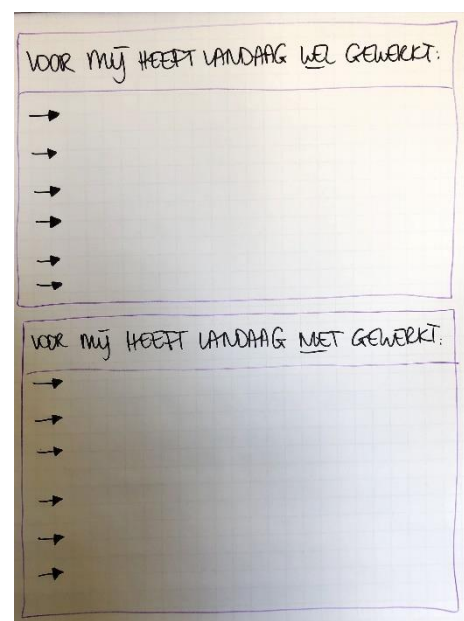 VOOR MIJ HEEFT VANDAAG WEL GEWERKT:
VOOR MIJ HEEFT VANDAAG NIET GEWERKT: